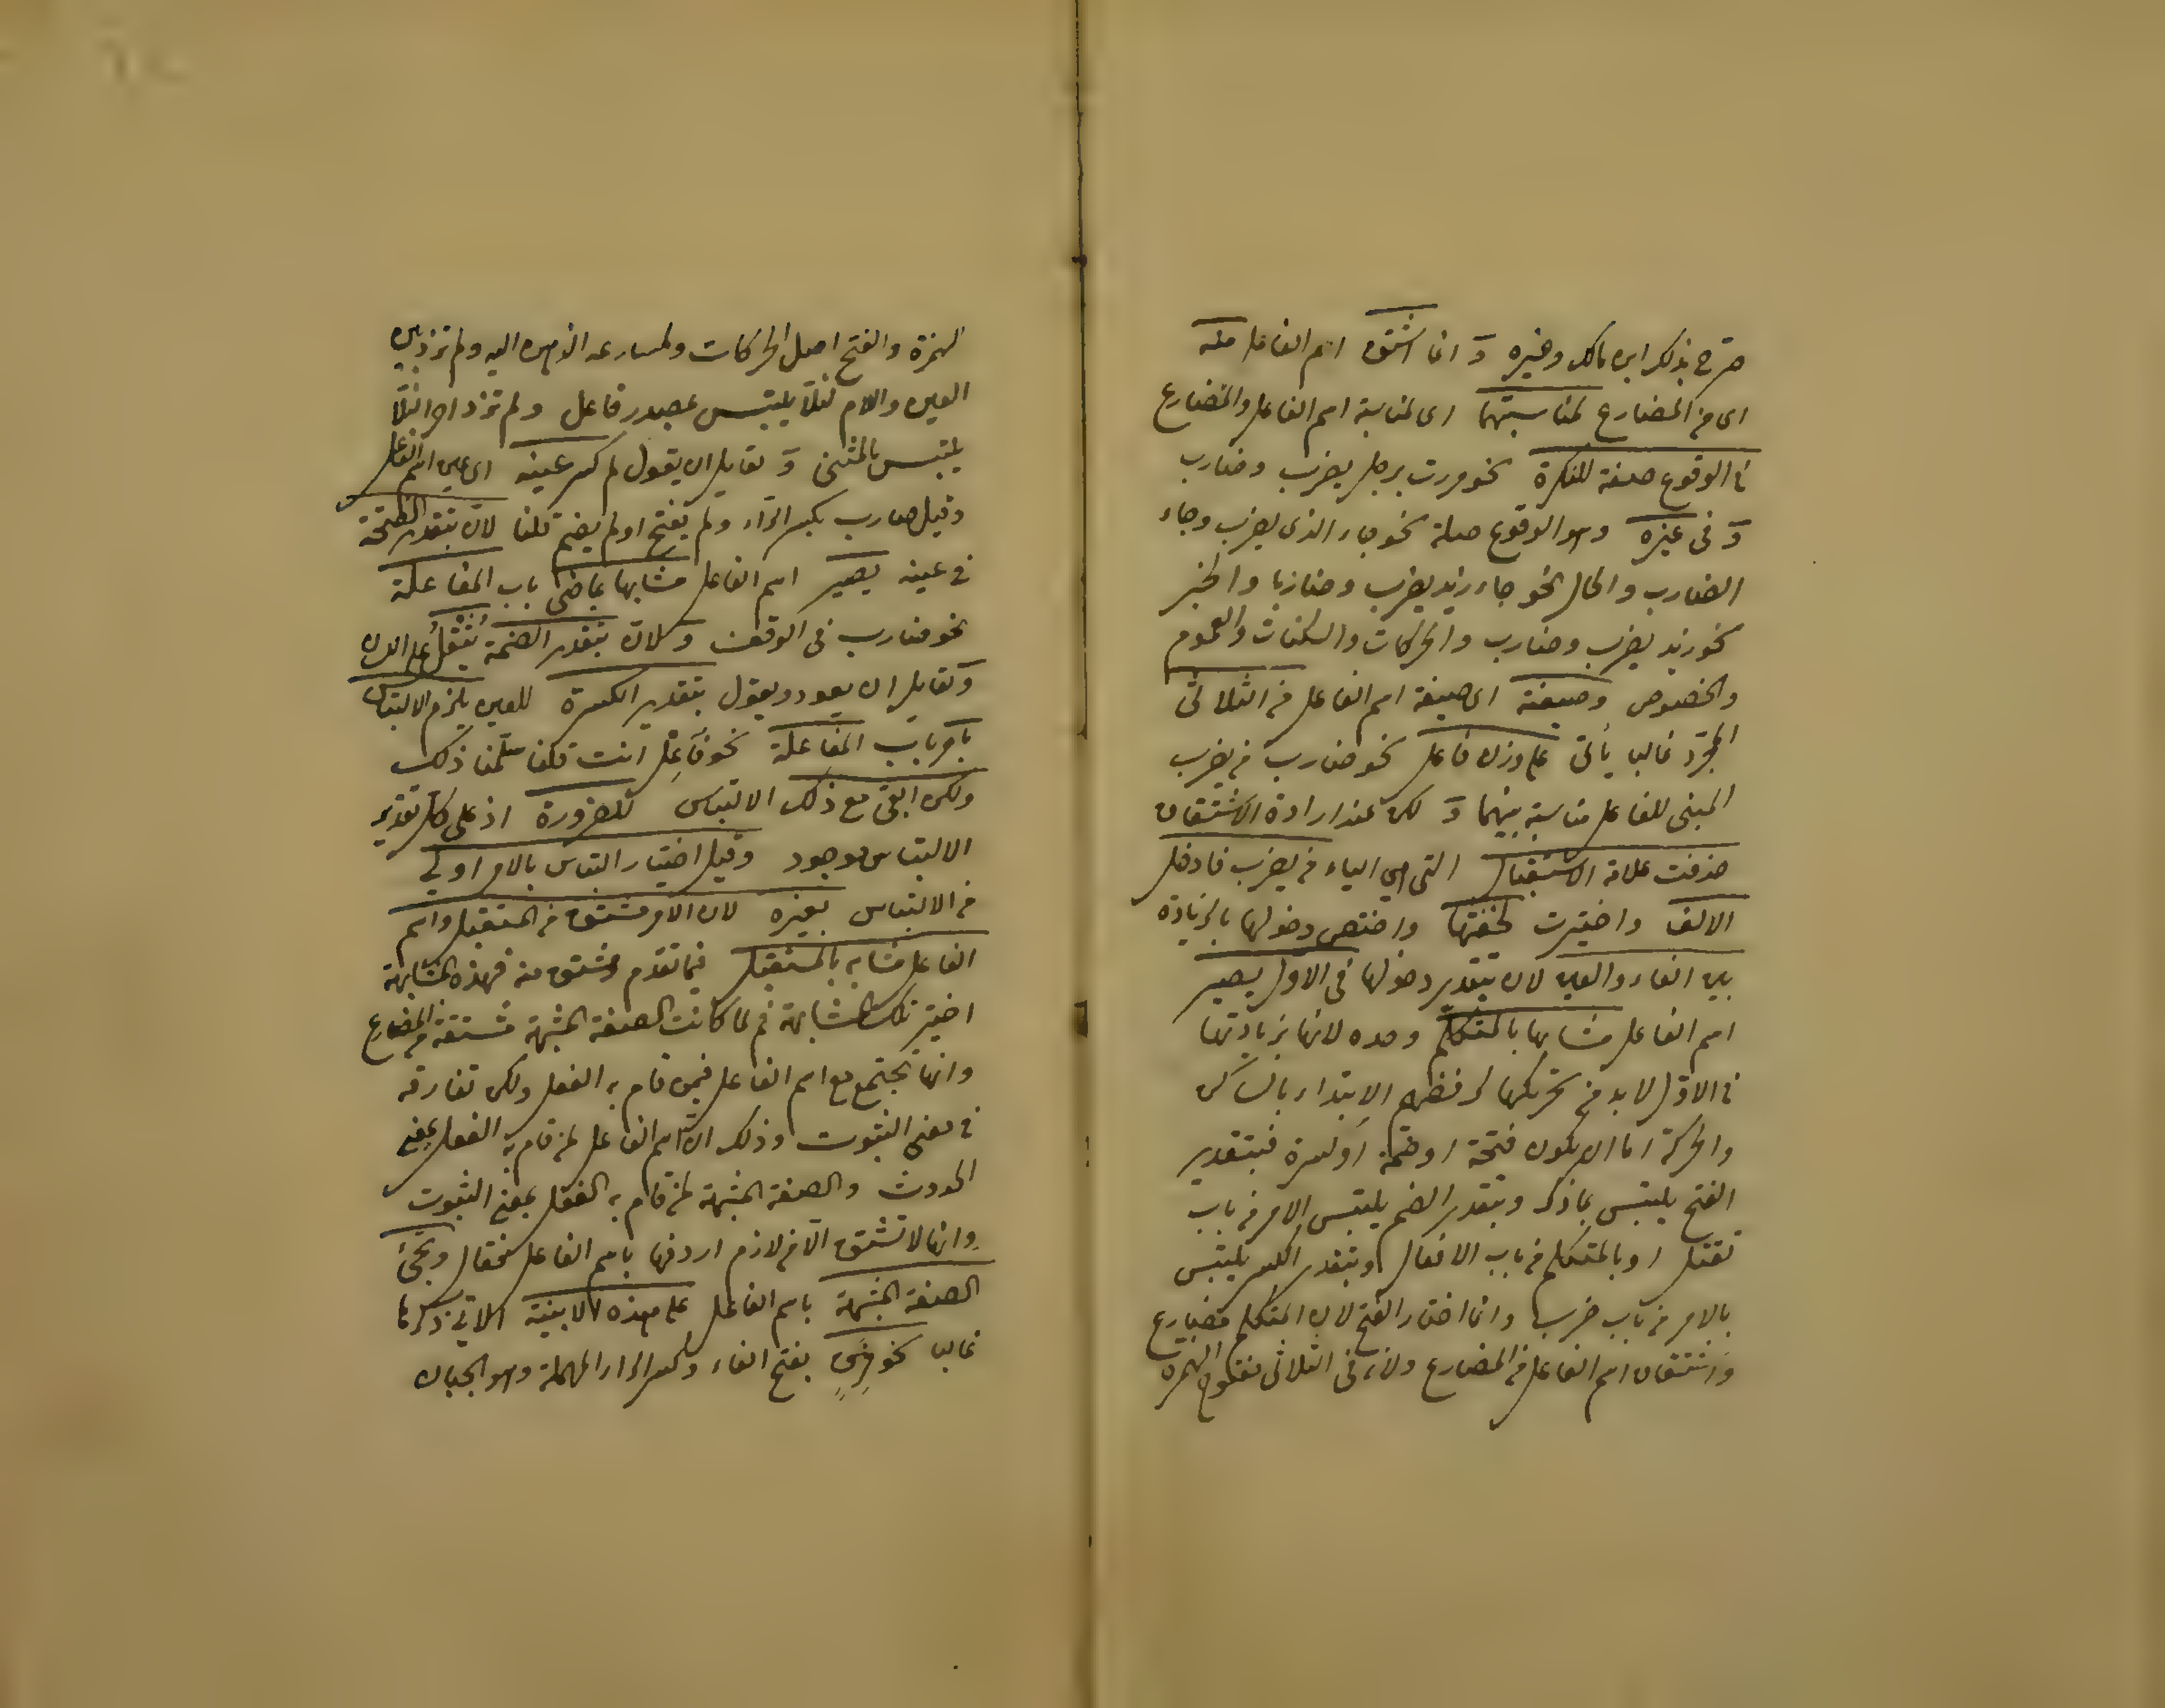 صرح بذلك ابن مالك وغيره و انما اشتق اسم الفاعل منه
اى من المضارع لمناسبتهما اى لمناسبة اسم الفاعل والمضارع
فى الوقوع صفة للنكرة نحو مررت برجل يضرب وضارب
و فى غيره وهو الوقوع صلة نحو جاء الذى يضرب وجاء
الضارب والحال نحو جاء زيد يضرب وضاربا والخبر
نحو زيد يضرب وضارب والحركات والسكنات والعموم
والخصوص وصيغته اى صيغة اسم الفاعل من الثلاثى
المجرد غالبا يأتى على وزن فاعل نحو ضارب من يضرب
المبنى للفاعل مناسبة بينهما و لكن عند ارادة الاشتقاق
حذفت علامة الاستقبال التى هى الياء من يضرب فادخل
الالف واختيرت لخفتها واختص دخولها بالزيادة
بين الفاء والعين لان بتقدير دخولها فى الاول يصير
اسم الفاعل مشابها بالمتكلم وحده لانها بزيادتها
فى الاول لا بد من تحريكها لرفضهم الابتداء بالساكن
والحركة اما ان يكون فتحة او ضمة او كسرة فبتقدير
الفتح يلتبس بما ذكر وبتقدير الضم يلتبس الامر من باب
تقتل او بالمتكلم من باب الافعال وبتقدير الكسر يلتبس
بالامر من باب ضرب وانما اختار الفتح لان المتكلم مضارع
واشتقاق اسم الفاعل من المضارع ولانه فى الثلاثى مفتوح الهمزة
الهمزة والفتح اصل الحركات ولمسارعة الذهن اليه ولم تزد بين
العين واللام لئلا يلتبس بمصدر فاعل ولم تزد اخرا لئلا
يلتبس بالمثنى و لقايل ان يقول لم كسر عينه اى عين اسم الفاعل
وقيل ضارب بكسر الراء ولم يفتح او لم يضم قلنا لان بتقدير الفتحة
فى عينه يصير اسم الفاعل مشابها بماضى باب المفاعلة
نحو ضارب فى الوقف و لان بتقدير الضمة يثقل على اللسان
و لقايل ان يعود ويقول بتقدير الكسرة للعين يلزم الالتباس
بامر باب المفاعلة نحو فاعل انت قلنا سلمنا ذلك
ولكن ابقى مع ذلك الالتباس للضرورة اذ على كل تقدير
الالتباس موجود وقيل اختيار التباس بالامر اولى
من الالتباس بغيره لان الامر مشتق من المستقبل واسم
الفاعل مشابه بالمستقبل فيما تقدم ومشتق منه فهذه المشابهة
اختير تلك المشابهة ثم لما كانت الصفة المشبهة مشتقة من المضارع
وانها تجتمع مع اسم الفاعل فيمن قام به الفعل ولكن تفارقه
فى معنى الثبوت وذلك لان اسم الفاعل لمن قام به الفعل بمعنى
الحدوث والصفة المشبهة لمن قام به الفعل بمعنى الثبوت
وانها لا تشتق الا من لازم اردفها باسم الفاعل فقال وتجئ
الصفة المشبهة باسم الفاعل على هذه الابنية الاتى ذكرها
غالبا نحو فرق بفتح الفاء وكسر الراء المهملة وهو الجبان